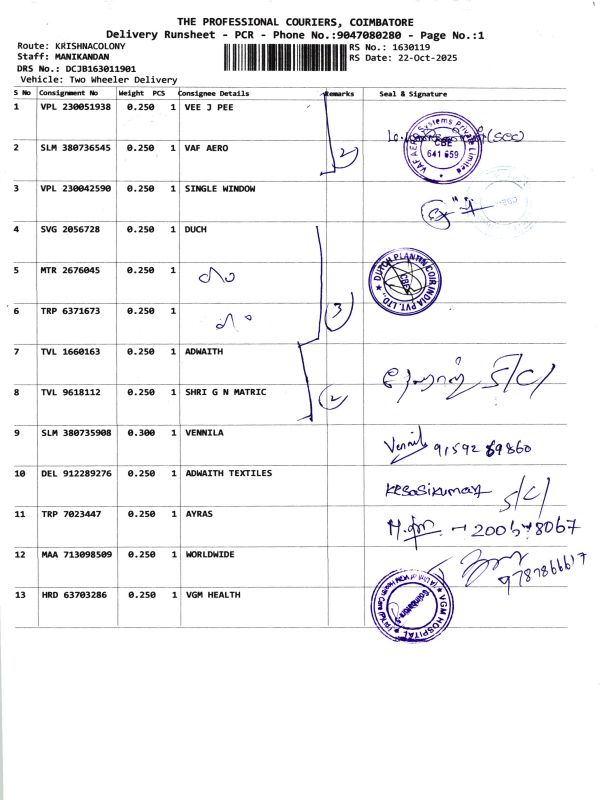 THE PROFESSIONAL COURIERS, COIMBATORE
Delivery Runsheet - PCR - Phone No.:9047080280 - Page No.:1
Route: KRISHNACOLONY RS No.: 1630119
Staff: MANIKANDAN RS Date: 22-Oct-2025
DRS No.: DCJB163011901
Vehicle: Two Wheeler Delivery
S No Consignment No Weight PCS Consignee Details Remarks Seal & Signature
1 VPL 230051938 0.250 1 VEE J PEE
2 SLM 380736545 0.250 1 VAF AERO 2 VAF AERO Systems Private Limited CBE 641 659
3 VPL 230042590 0.250 1 SINGLE WINDOW
4 SVG 2056728 0.250 1 DUCH
5 MTR 2676045 0.250 1 DUTCH PLANTIN COIR INDIA PVT. LTD. CBE
6 TRP 6371673 0.250 1 3
7 TVL 1660163 0.250 1 ADWAITH S/C/
8 TVL 9618112 0.250 1 SHRI G N MATRIC 2
9 SLM 380735908 0.300 1 VENNILA Vennila
10 DEL 912289276 0.250 1 ADWAITH TEXTILES S/C/
11 TRP 7023447 0.250 1 AYRAS
12 MAA 713098509 0.250 1 WORLDWIDE
13 HRD 63703286 0.250 1 VGM HEALTH VGM HOSPITAL